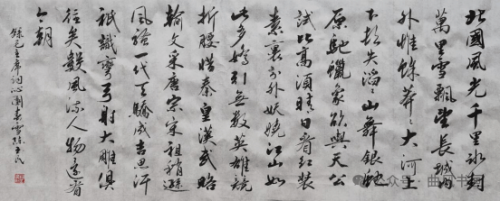 北國風光千里冰封
萬里雪飄望長城內
外惟餘莽々大河上
下頓失滔々山舞銀蛇
原馳蠟象欲與天公
試比高須晴日看紅裝
素裹分外妖嬈江山如
此多嬌引無數英雄競
折腰惜秦皇漢武略
輸文采唐宗宋祖稍遜
風騷一代天驕成吉思汗
祇識彎弓射大雕俱
往矣數風流人物還看
今朝
錄毛主席詞沁園春雪
公众号